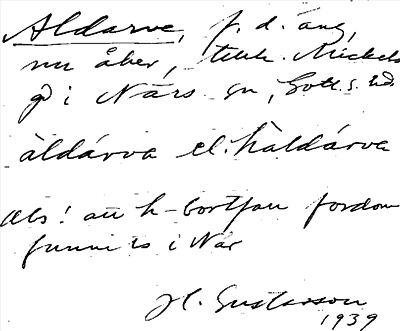 Aldarve, f. d. äng,
nu åker, tillh. Mickels
gd i Närs sn, Gotl. s. hd.
àldárva el. hàldárva
Obs! att h-bortfall fordom
funnits i När
H. Gustavson
1939